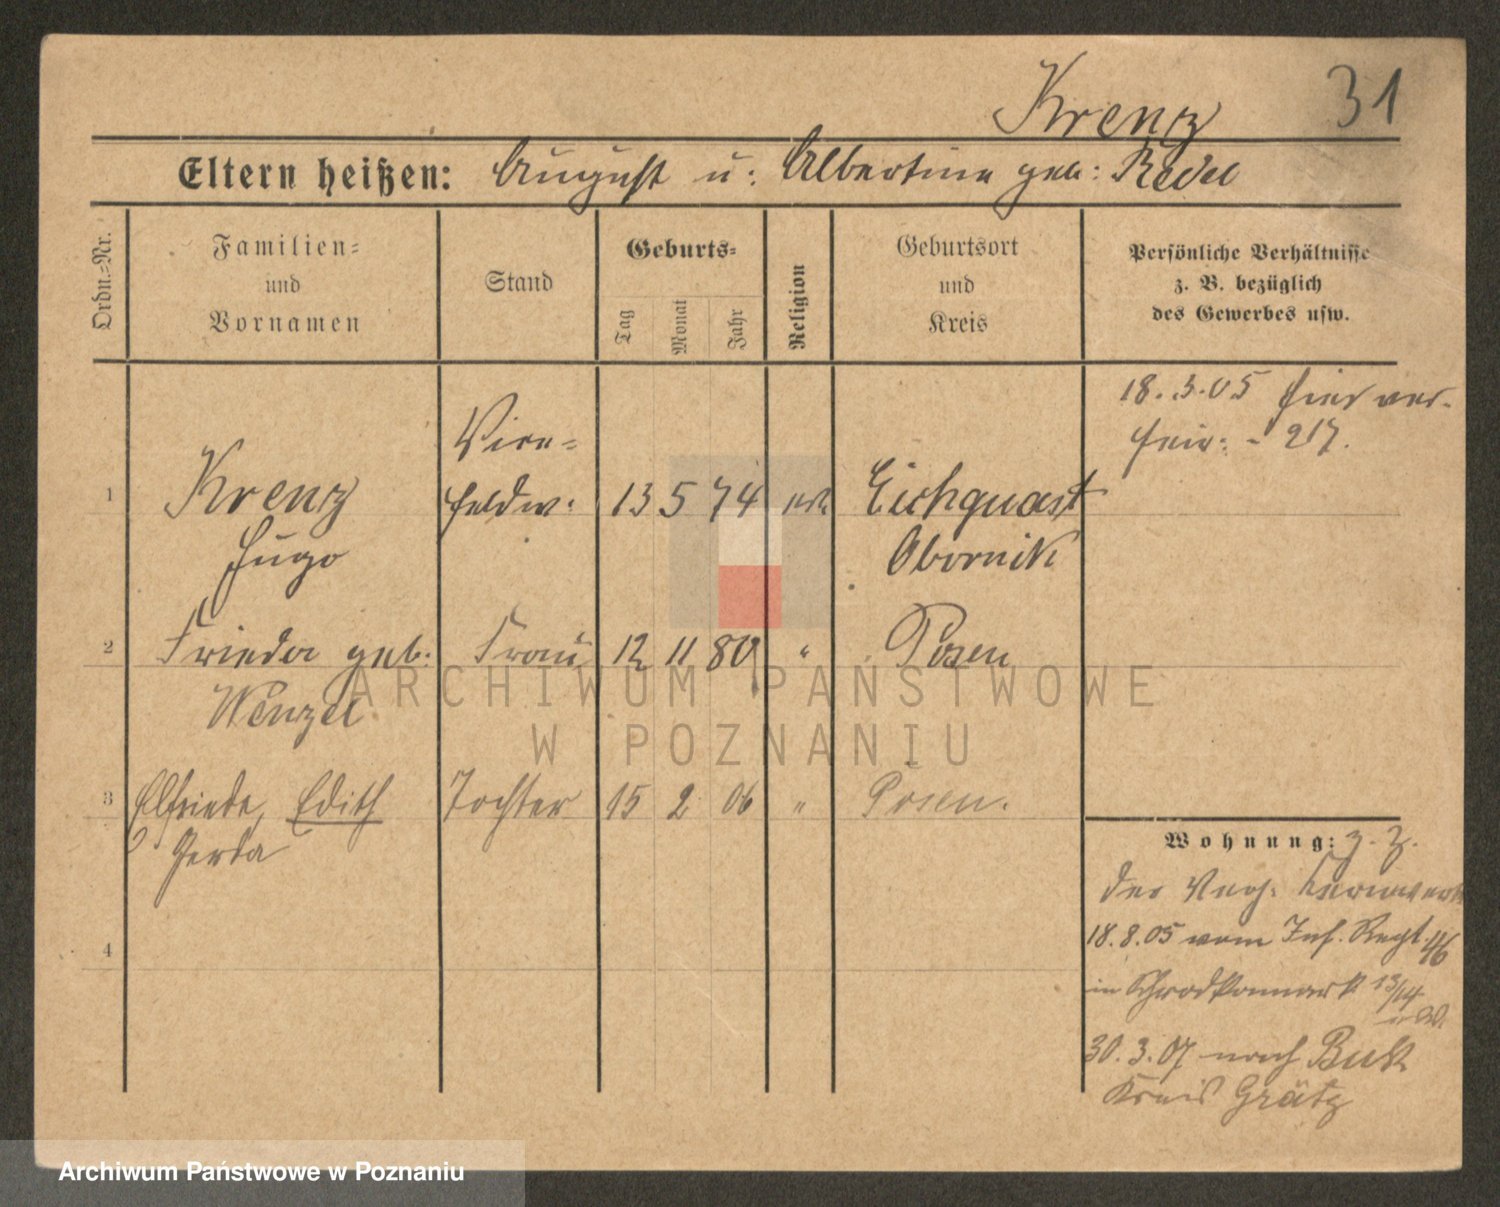 Krenz 31
Eltern heißen: August u: Albertine geb: Redel
Ordn.=Nr.
Familien=
und
Vornamen
Stand
Geburts=
Tag
Monat
Jahr
Religion
Geburtsort
und
Kreis
Persönliche Verhältnisse
z. B. bezüglich
des Gewerbes usw.
18.3.05 hier ver-
heir: - 217.
1 Krenz Vice= 13 5 74 Eichquast
Hugo feldw: Obornik
2 Frieda geb: Frau 12 11 80 " Posen
Wenzel
3 Elfriede, Edith Tochter 15 2 06 " Posen.
Gerda
4
Wohnung: z. Z.
18.8.05 vom Inf. Regt. 46
in 13/14
30.3.07 nach Buk
Kreis Grätz
ARCHIWUM PAŃSTWOWE
W POZNANIU
Archiwum Państwowe w Poznaniu